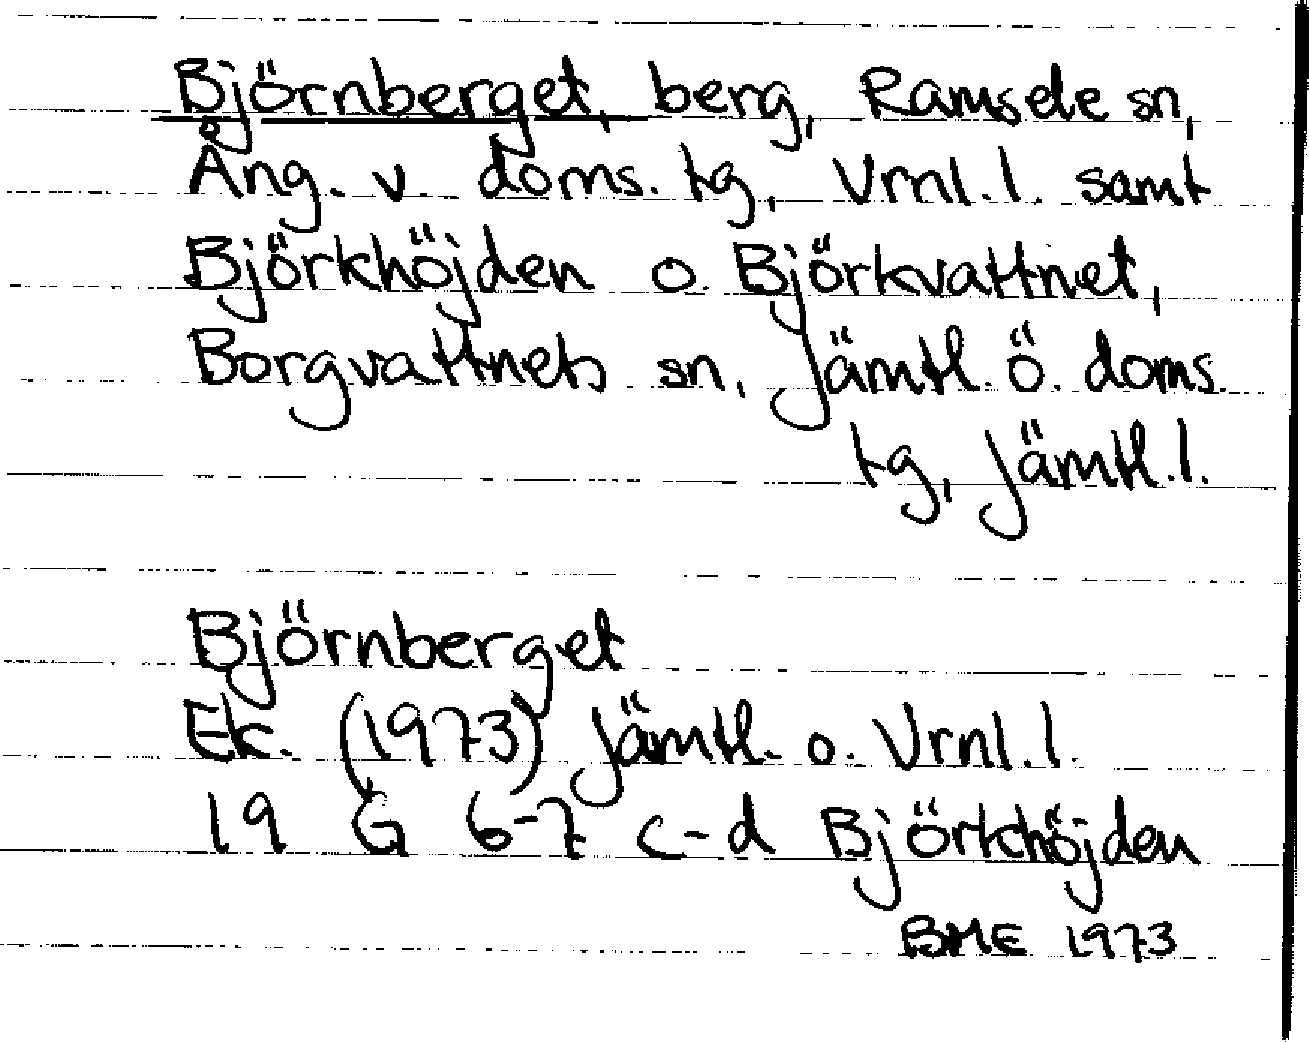 Björnberget, berg, Ramsele sn,
Ång. v. doms. tg, Vrnl. l. samt
Björkhöjden o. Björkvattnet,
Borgvattnets sn, Jämtl. ö. doms.
tg, Jämtl. l.
Björnberget
Ek. (1973) Jämtl. o. Vrnl. l.
19 G 6-7 c-d Björkhöjden
BME 1973